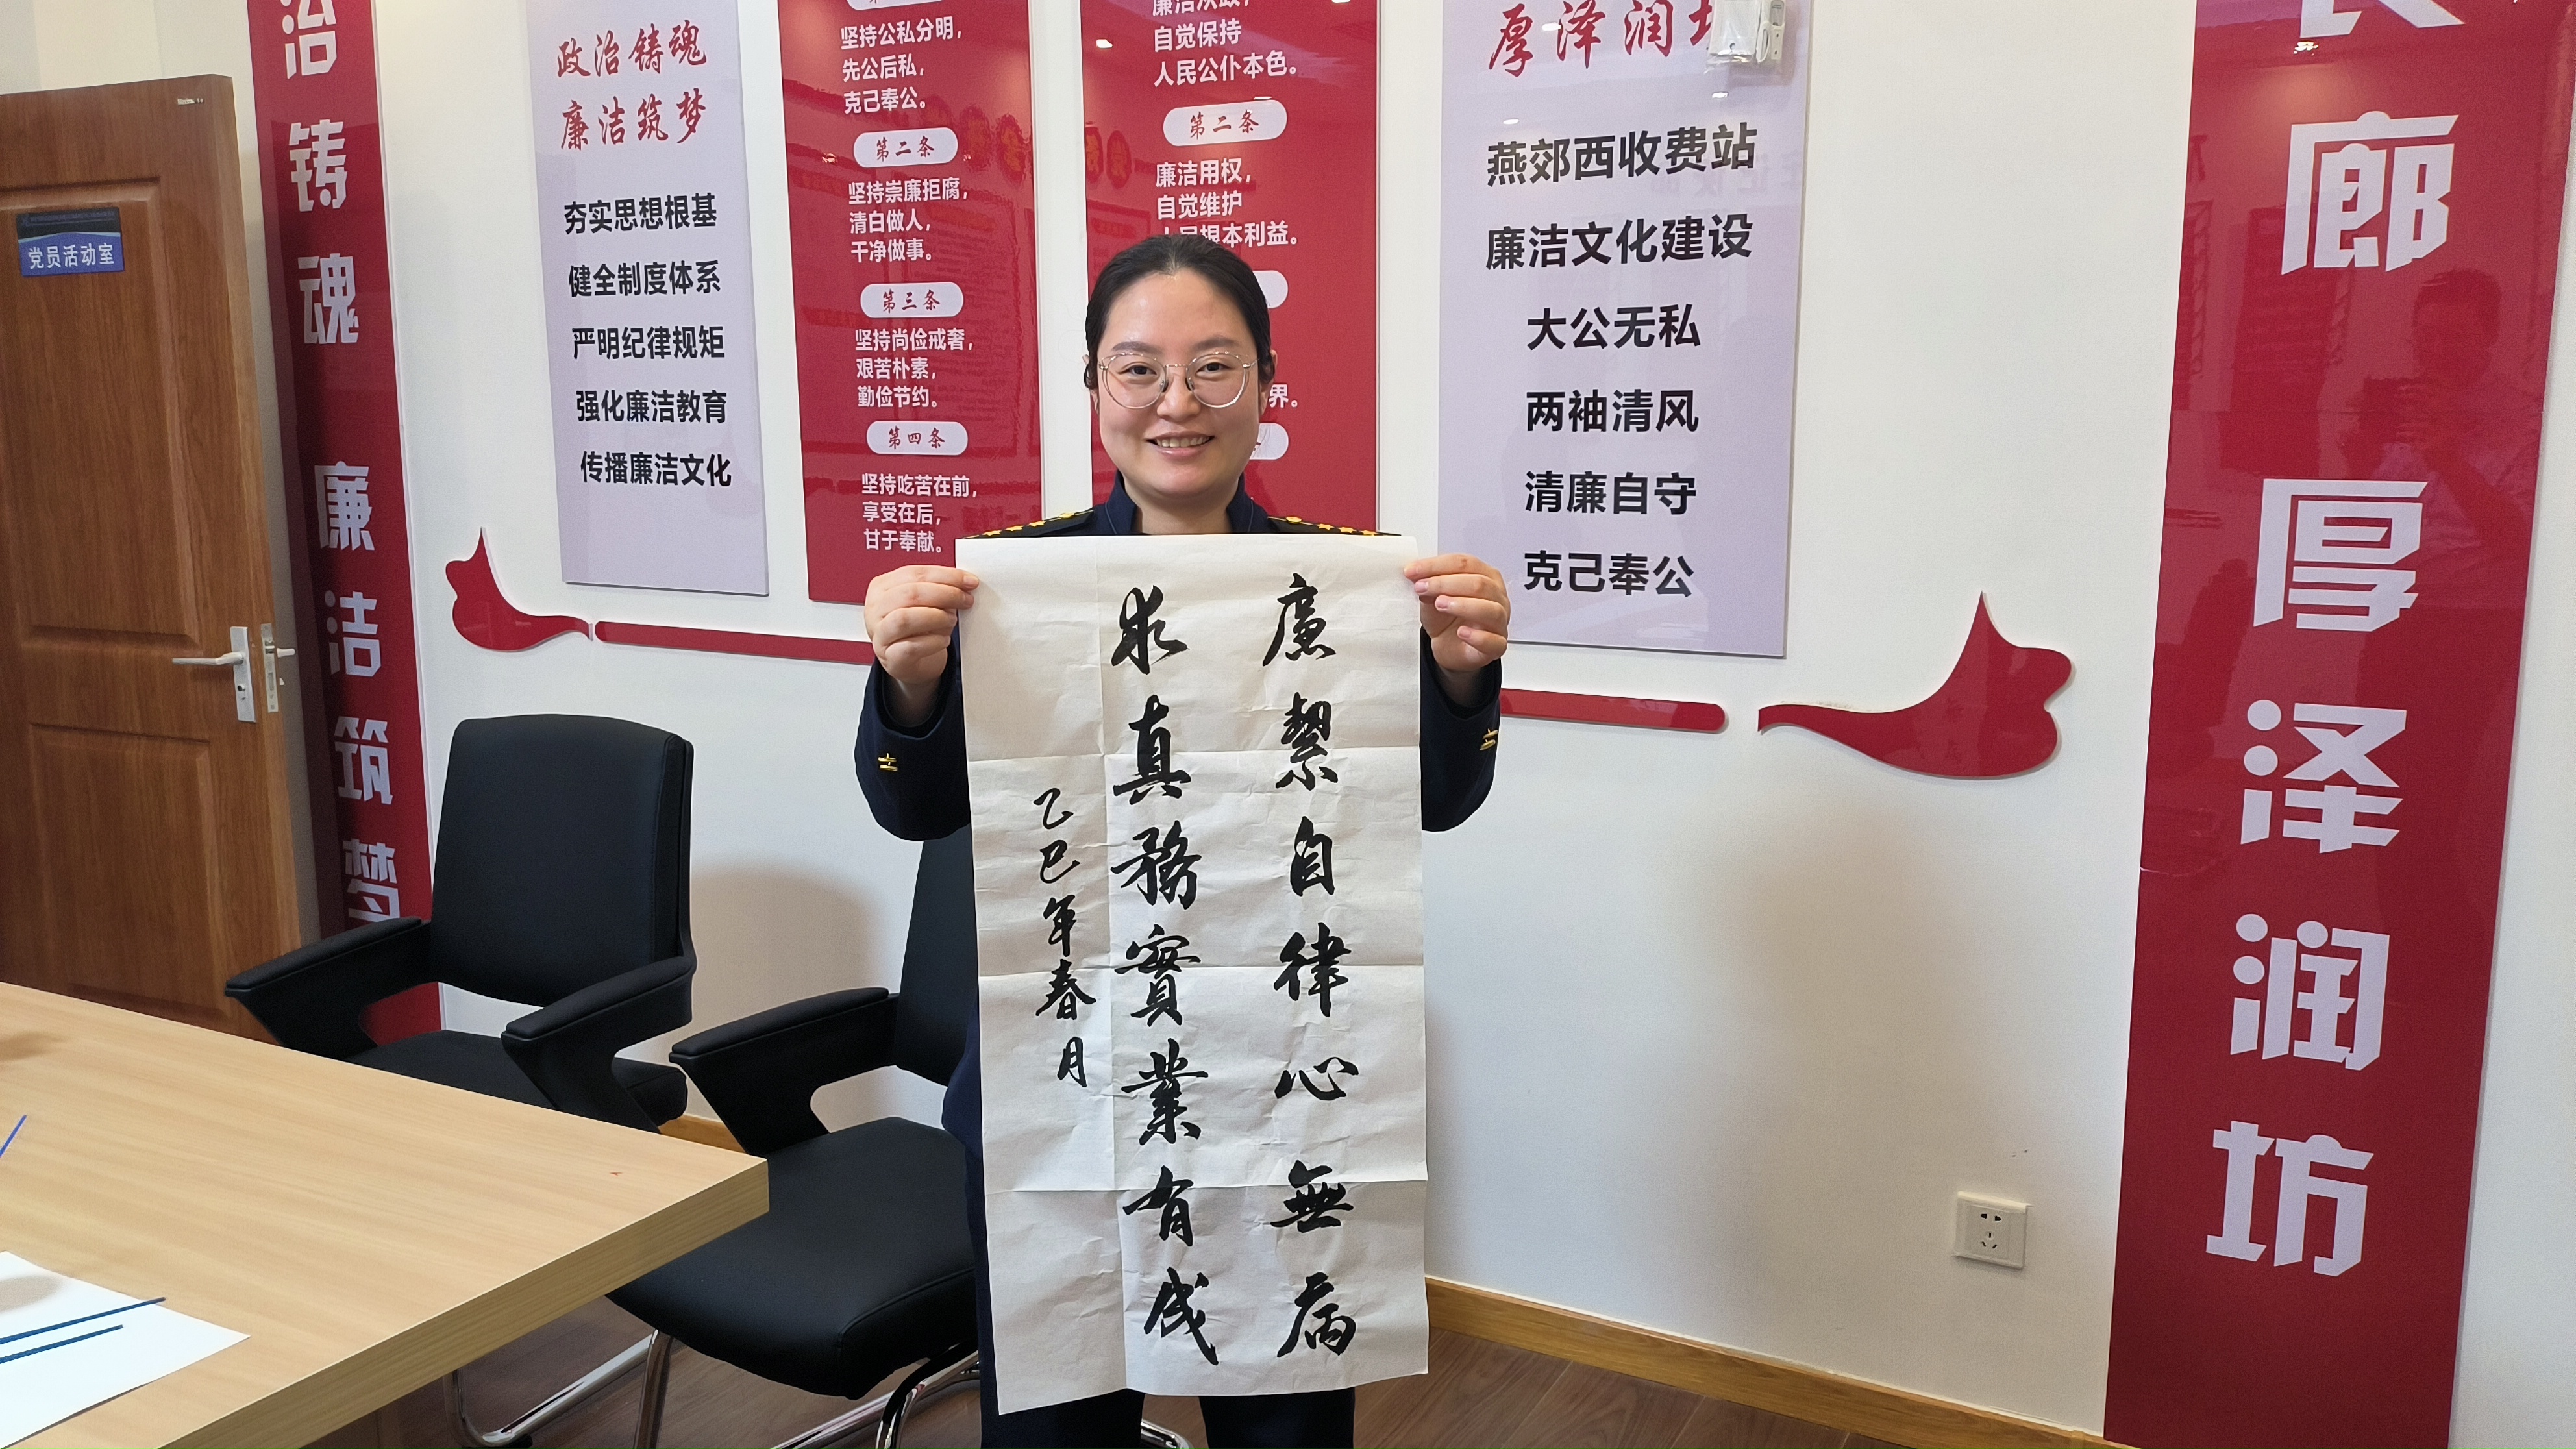 党员活动室
治铸魂 廉洁筑梦
政治铸魂
廉洁筑梦
夯实思想根基
健全制度体系
严明纪律规矩
强化廉洁教育
传播廉洁文化
坚持公私分明，
先公后私，
克己奉公。
第二条
坚持崇廉拒腐，
清白做人，
干净做事。
第三条
坚持尚俭戒奢，
艰苦朴素，
勤俭节约。
第四条
坚持吃苦在前，
享受在后，
甘于奉献。
廉洁从政，
自觉保持
人民公仆本色。
第二条
廉洁用权，
自觉维护
人民根本利益。
界。
厚泽润坊
燕郊西收费站
廉洁文化建设
大公无私
两袖清风
清廉自守
克己奉公
廊 厚泽润坊
廉絜自律心無病
求真務實業有成
乙巳年春月